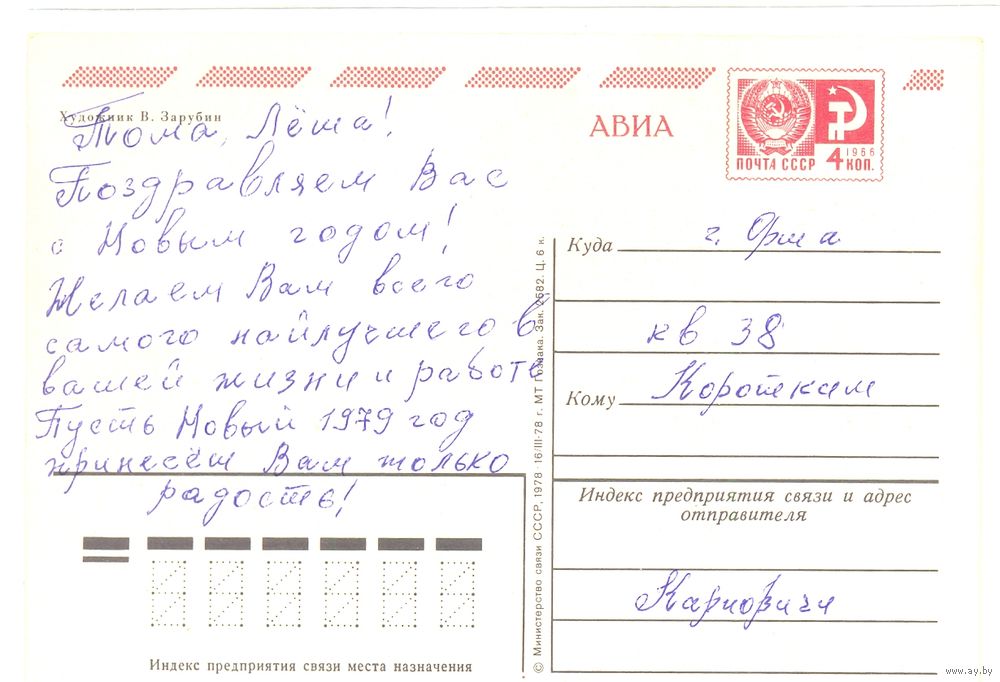 Художник В. Зарубин
Тома, Лёша!
Поздравляем Вас
с Новым годом!
Желаем Вам всего
самого найлучшего в
вашей жизни и работе
Пусть Новый 1979 год
принесёт Вам только
радость!
Индекс предприятия связи места назначения
© Министерство связи СССР, 1978 · 16/III-78 г. МТ Гознака. Зак. 2682. Ц. 6 к.
АВИА
ПОЧТА СССР
1966
4 КОП.
Куда г. Орша
кв 38
Кому Коротким
Индекс предприятия связи и адрес
отправителя
Карповичи
www.ay.by